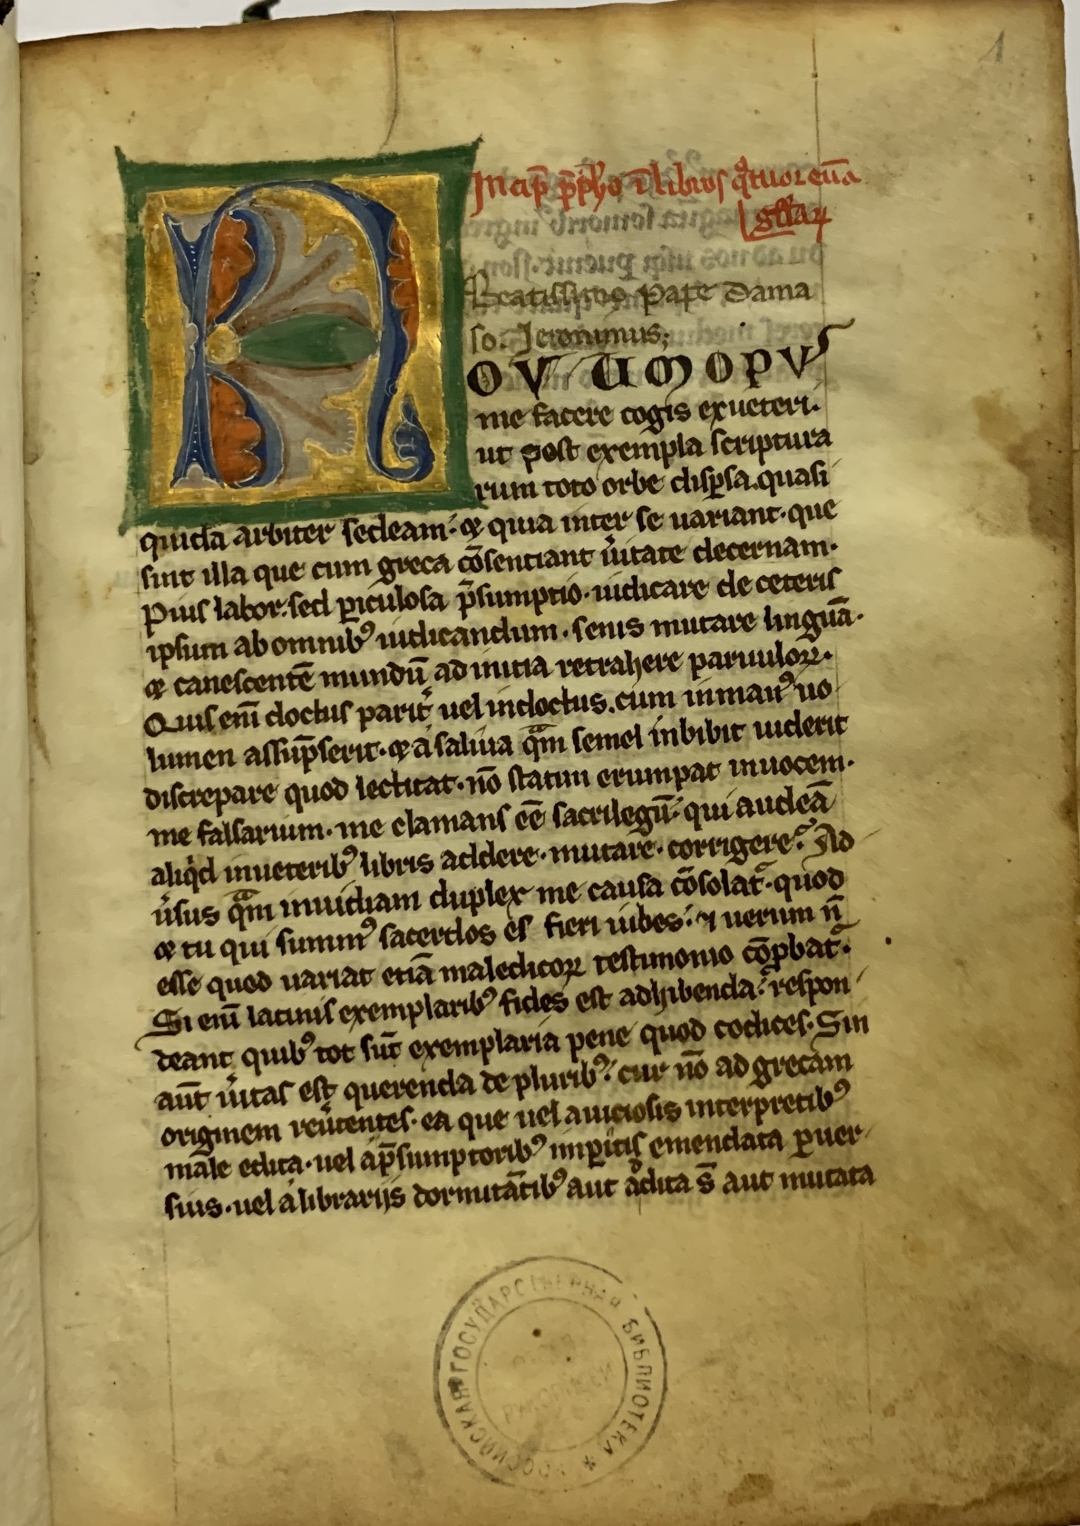 1
Incip̄ p̄ph̄o ī libros q̊tuor euā
gl̄iaꝝ
Beatissimo pape Dama
so. Jeronimus;
NOVUM OPUS
me facere cogis ex ueteri.
ut post exempla scriptura
rum toto orbe disꝑsa. quasi
quida arbiter sedeam. & quia inter se uariant. que
sint illa que cum greca cōsentiant u̓itate decernam.
Pius labor. sed ꝑiculosa p̄sumptio. iudicare de ceteris
ipsum ab omnibꝰ iudicandum. senis mutare linguā.
& canescentē mundū ad initia retrahere paruuloꝝ.
Quis eni̅ doctus parit̓ uel indoctus. cum in manꝰ uo
lumen assūpserit. & a saliua q̄m semel inbibit uiderit
discrepare quod lectitat. nō statim erumpat in uocem.
me falsarium. me clamans eē sacrilegū. qui audeā
aliq̇d in ueteribꝰ libris addere. mutare. corrigere. Ad
u̓sus q̄m inuidiam duplex me causa cōsolat̓. quod
& tu qui summꝰ sacerdos es fieri iubes. ⁊ uerum n̄
esse quod uariat etiā maledicoꝝ testimonio cōprobat̓.
Si eni̅ latinis exemplaribꝰ fides est adhibenda. respon
deant quibꝰ tot sūt exemplaria pene quod codices. Sin
aūt u̓itas est querenda de pluribꝰ. cur nō ad grecam
originem reu̓tentes. ea que uel a uiciosis interpretibꝰ
male edita. uel a p̄sumptoribꝰ imꝑitis emendata ꝑuer
sius. uel a librarijs dormitātibꝰ aut addita s̄ aut mutata
РОССИЙСКАЯ ГОСУДАРСТВЕННАЯ БИБЛИОТЕКА *